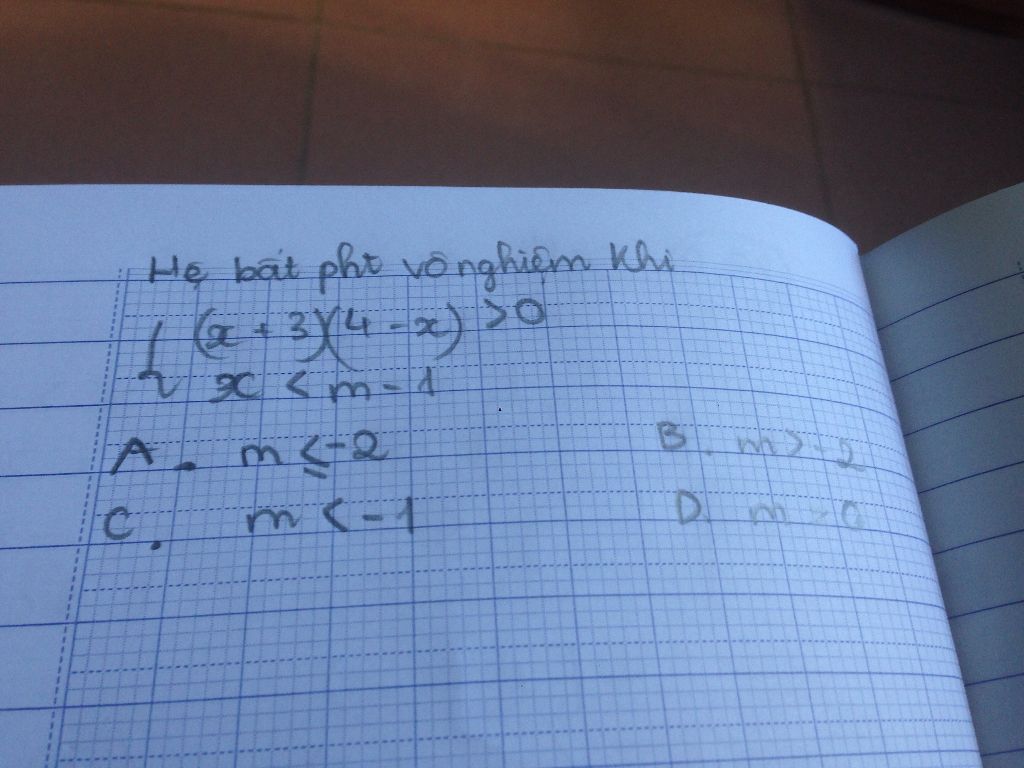 Hệ bất pht vô nghiệm Khi
{ (x + 3)(4 - x) > 0
x < m - 1
A. m ≤ -2 B. m > -2
C. m < -1 D. m = 0